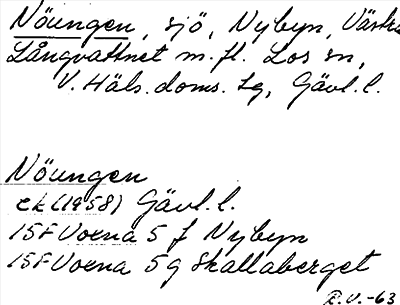 Nöungen, sjö, Nybyn, Västra
Långvattnet m.fl. Los sn,
V. Häls. doms. lg, Gävl. l.
Nöungen
ek (1958) Gävl. l.
15F Voxna 5 f Nybyn
15F Voxna 5 g Skallaberget
R.V.-63